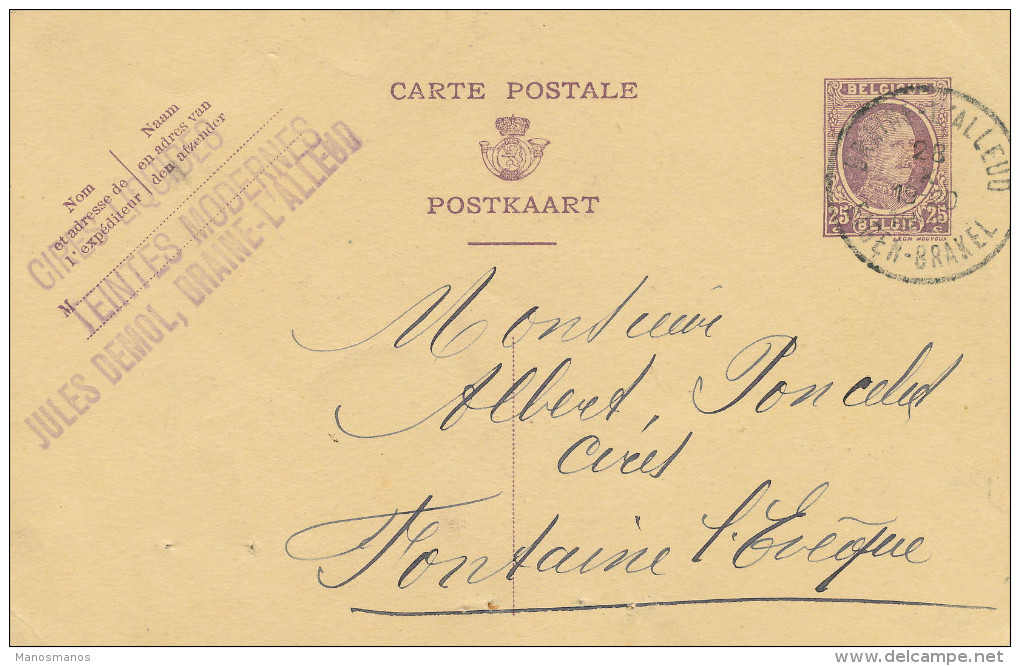 CARTE POSTALE
POSTKAART
Nom
et adresse de
l'expéditeur
Naam
en adres van
den afzender
M
CIRES
TEINTES MODERNES
JULES DEMOL, BRAINE-L'ALLEUD
BELGI
25c BELGIË 25c
L'ALLEUD
28
EIGEN-BRAKEL
Monsieur
Albert Poncelet
Cires
Fontaine l'Evêque
Manosmanos
delcampe.net